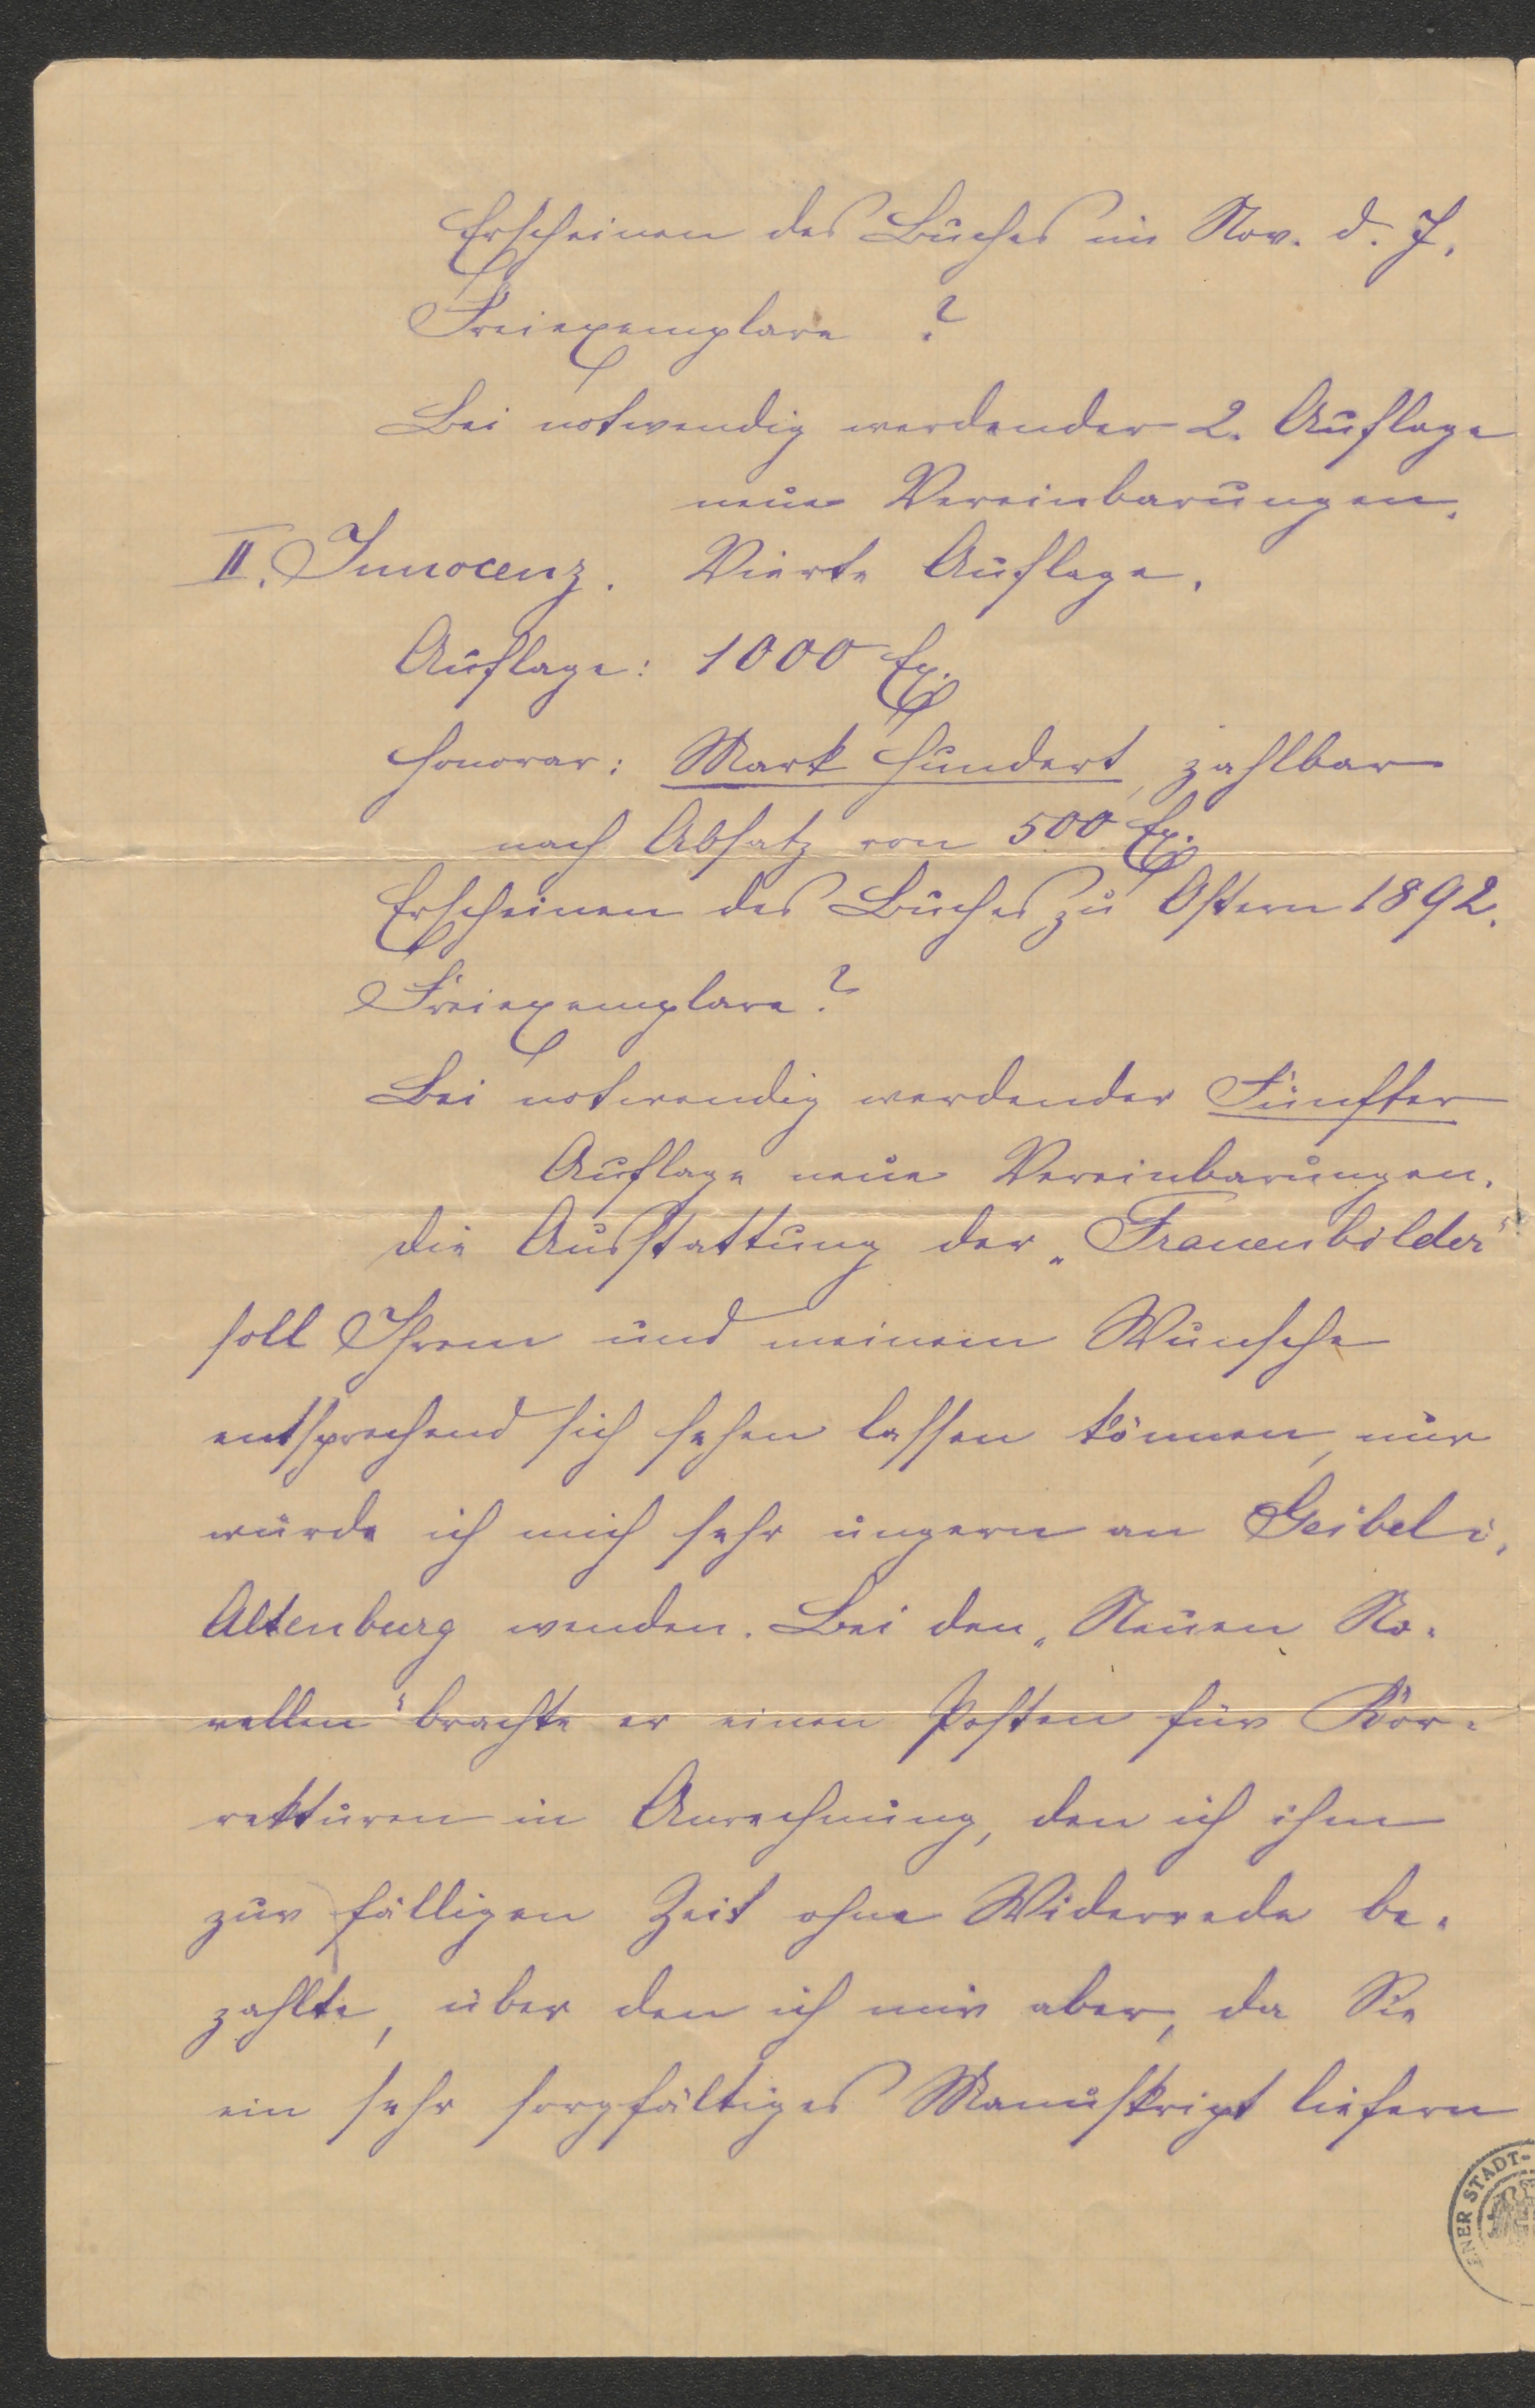 Erscheinen des Buches im Nov. d. J.
Freiexemplare ?
Bei notwendig werdender 2. Auflage
neue Vereinbarungen.
II. Innocenz. Vierte Auflage.
Auflage: 1000 Ex.
Honorar: Mark Hundert, zahlbar
nach Absatz von 500 Ex.
Erscheinen des Buches zu Ostern 1892.
Freiexemplare?
Bei notwendig werdender Fünfter
Auflage neue Vereinbarungen.
Die Ausstattung der „Frauenbilder“
soll Ihrem und meinem Wunsche
entsprechend sich sehen lassen können, nur
würde ich mich sehr ungern an Geibel i.
Altenburg wenden. Bei den „Neuen No-
vellen“ brachte er einen Posten für Kor-
rekturen in Anrechnung, den ich ihm
zur fälligen Zeit ohne Widerrede be-
zahlte, über den ich mir aber, da Sie
ein sehr sorgfältiges Manuskript liefern
ENER STADT-